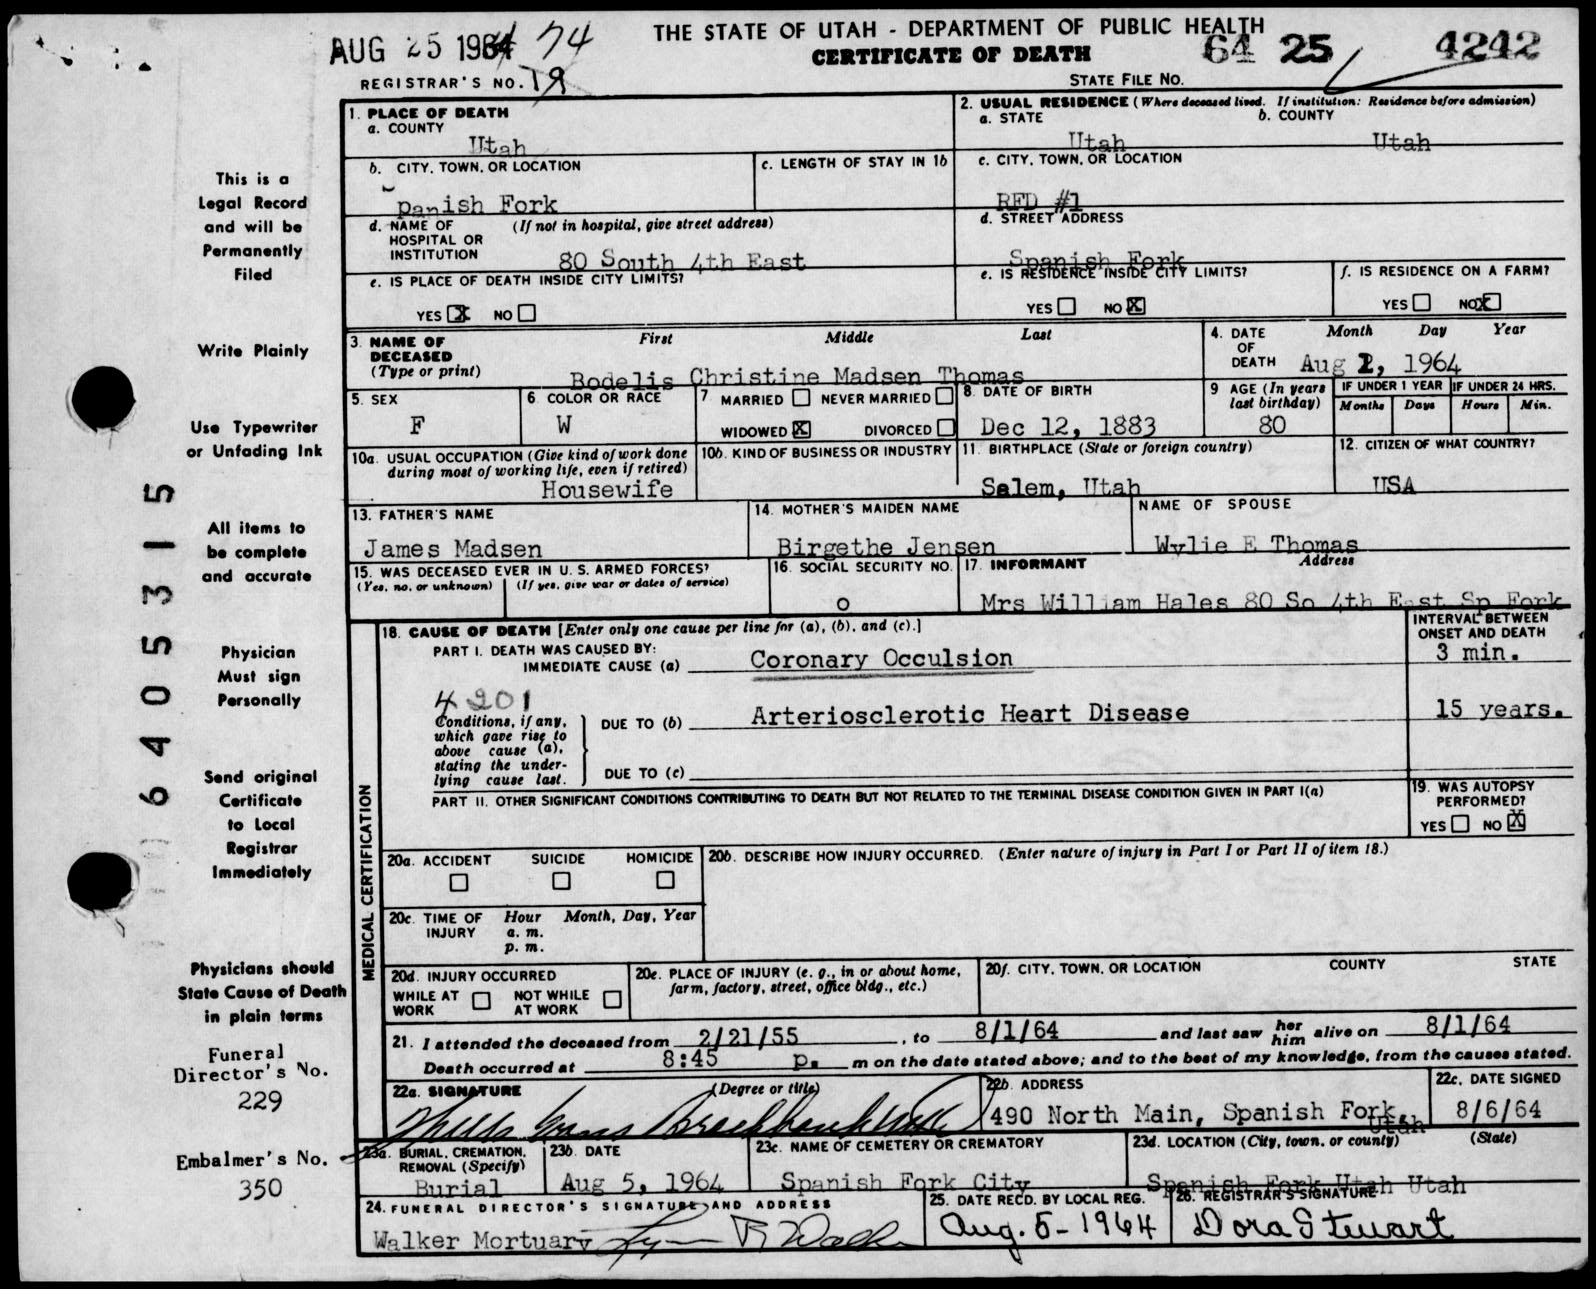 AUG 25 1964 74
THE STATE OF UTAH - DEPARTMENT OF PUBLIC HEALTH
CERTIFICATE OF DEATH
64 25 4242
REGISTRAR'S NO.
STATE FILE NO.
This is a
Legal Record
and will be
Permanently
Filed
Write Plainly
Use Typewriter
or Unfading Ink
All items to
be complete
and accurate
Physician
Must sign
Personally
Send original
Certificate
to Local
Registrar
Immediately
Physicians should
State Cause of Death
in plain terms
Funeral
Director's No.
229
Embalmer's No.
350
6405315
1. PLACE OF DEATH
a. COUNTY
Utah
2. USUAL RESIDENCE (Where deceased lived. If institution: Residence before admission)
a. STATE b. COUNTY
Utah Utah
b. CITY, TOWN, OR LOCATION
panish Fork
c. LENGTH OF STAY IN 1b
c. CITY, TOWN, OR LOCATION
RFD #1
d. NAME OF HOSPITAL OR INSTITUTION (If not in hospital, give street address)
80 South 4th East
d. STREET ADDRESS
Spanish Fork
e. IS PLACE OF DEATH INSIDE CITY LIMITS?
YES X NO
e. IS RESIDENCE INSIDE CITY LIMITS?
YES NO X
f. IS RESIDENCE ON A FARM?
YES NO X
3. NAME OF DECEASED (Type or print)
First Middle Last
Bodelis Christine Madsen Thomas
4. DATE OF DEATH
Month Day Year
Aug 1, 1964
5. SEX
F
6. COLOR OR RACE
W
7 MARRIED NEVER MARRIED
WIDOWED X DIVORCED
8. DATE OF BIRTH
Dec 12, 1883
9 AGE (In years last birthday)
80
IF UNDER 1 YEAR IF UNDER 24 HRS.
Months Days Hours Min.
10a. USUAL OCCUPATION (Give kind of work done during most of working life, even if retired)
Housewife
10b. KIND OF BUSINESS OR INDUSTRY
11. BIRTHPLACE (State or foreign country)
Salem, Utah
12. CITIZEN OF WHAT COUNTRY?
USA
13. FATHER'S NAME
James Madsen
14. MOTHER'S MAIDEN NAME
Birgethe Jensen
NAME OF SPOUSE
Wylie E Thomas
15. WAS DECEASED EVER IN U. S. ARMED FORCES?
(Yes, no, or unknown) (If yes, give war or dates of service)
16. SOCIAL SECURITY NO.
o
17. INFORMANT Address
Mrs William Hales 80 So 4th East Sp Fork
MEDICAL CERTIFICATION
18. CAUSE OF DEATH [Enter only one cause per line for (a), (b), and (c).]
INTERVAL BETWEEN ONSET AND DEATH
PART I. DEATH WAS CAUSED BY:
IMMEDIATE CAUSE (a) Coronary Occulsion 3 min.
4201
Conditions, if any, which gave rise to above cause (a), stating the underlying cause last.
DUE TO (b) Arteriosclerotic Heart Disease 15 years.
DUE TO (c)
PART II. OTHER SIGNIFICANT CONDITIONS CONTRIBUTING TO DEATH BUT NOT RELATED TO THE TERMINAL DISEASE CONDITION GIVEN IN PART I(a)
19. WAS AUTOPSY PERFORMED?
YES NO X
20a. ACCIDENT SUICIDE HOMICIDE
20b. DESCRIBE HOW INJURY OCCURRED. (Enter nature of injury in Part I or Part II of item 18.)
20c. TIME OF INJURY Hour Month, Day, Year
a. m.
p. m.
20d. INJURY OCCURRED
WHILE AT WORK NOT WHILE AT WORK
20e. PLACE OF INJURY (e. g., in or about home, farm, factory, street, office bldg., etc.)
20f. CITY, TOWN, OR LOCATION COUNTY STATE
21. I attended the deceased from 2/21/55, to 8/1/64 and last saw her him alive on 8/1/64
Death occurred at 8:45 p. m on the date stated above; and to the best of my knowledge, from the causes stated.
22a. SIGNATURE (Degree or title)
22b. ADDRESS
490 North Main, Spanish Fork, Utah
22c. DATE SIGNED
8/6/64
23a. BURIAL, CREMATION, REMOVAL (Specify)
Burial
23b. DATE
Aug 5, 1964
23c. NAME OF CEMETERY OR CREMATORY
Spanish Fork City
23d. LOCATION (City, town, or county) (State)
Spanish Fork Utah Utah
24. FUNERAL DIRECTOR'S SIGNATURE AND ADDRESS
Walker Mortuary
25. DATE RECD. BY LOCAL REG.
Aug. 5-1964
26. REGISTRAR'S SIGNATURE
Dora Stewart